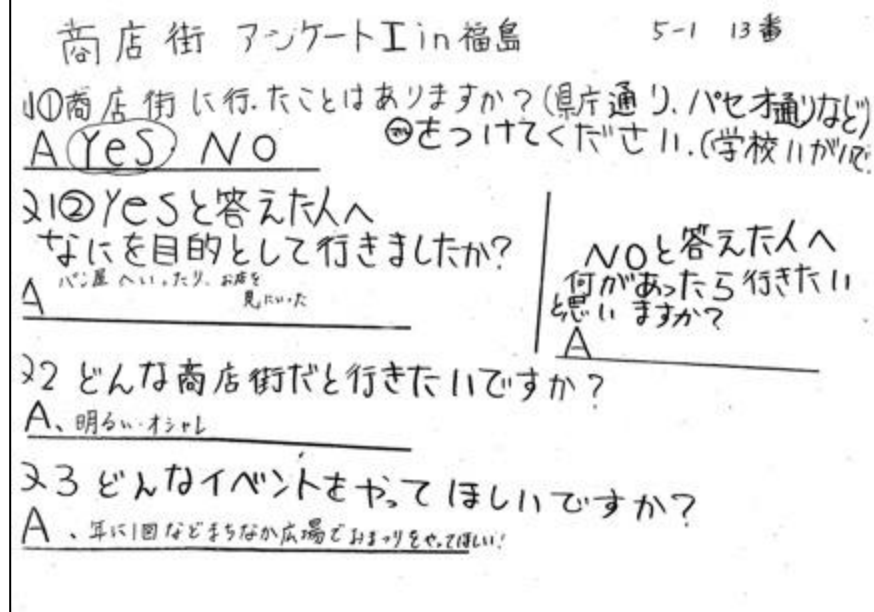 商店街 アンケートI in 福島 5-1 13番
①商店街に行ったことはありますか?(県庁通り、パセオ通りなど)
A YeS NO をつけてください.(学校いがいで
②Yesと答えた人へ
なにを目的として行きましたか?
A パン屋へいったり、お店を
見にいった
NOと答えた人へ
何があったら行きたい
と思いますか?
A
2 どんな商店街だと行きたいですか?
A、明るい・オシャレ
3 どんなイベントをやってほしいですか?
A、年に1回などまちなか広場でおまつりをやってほしい!